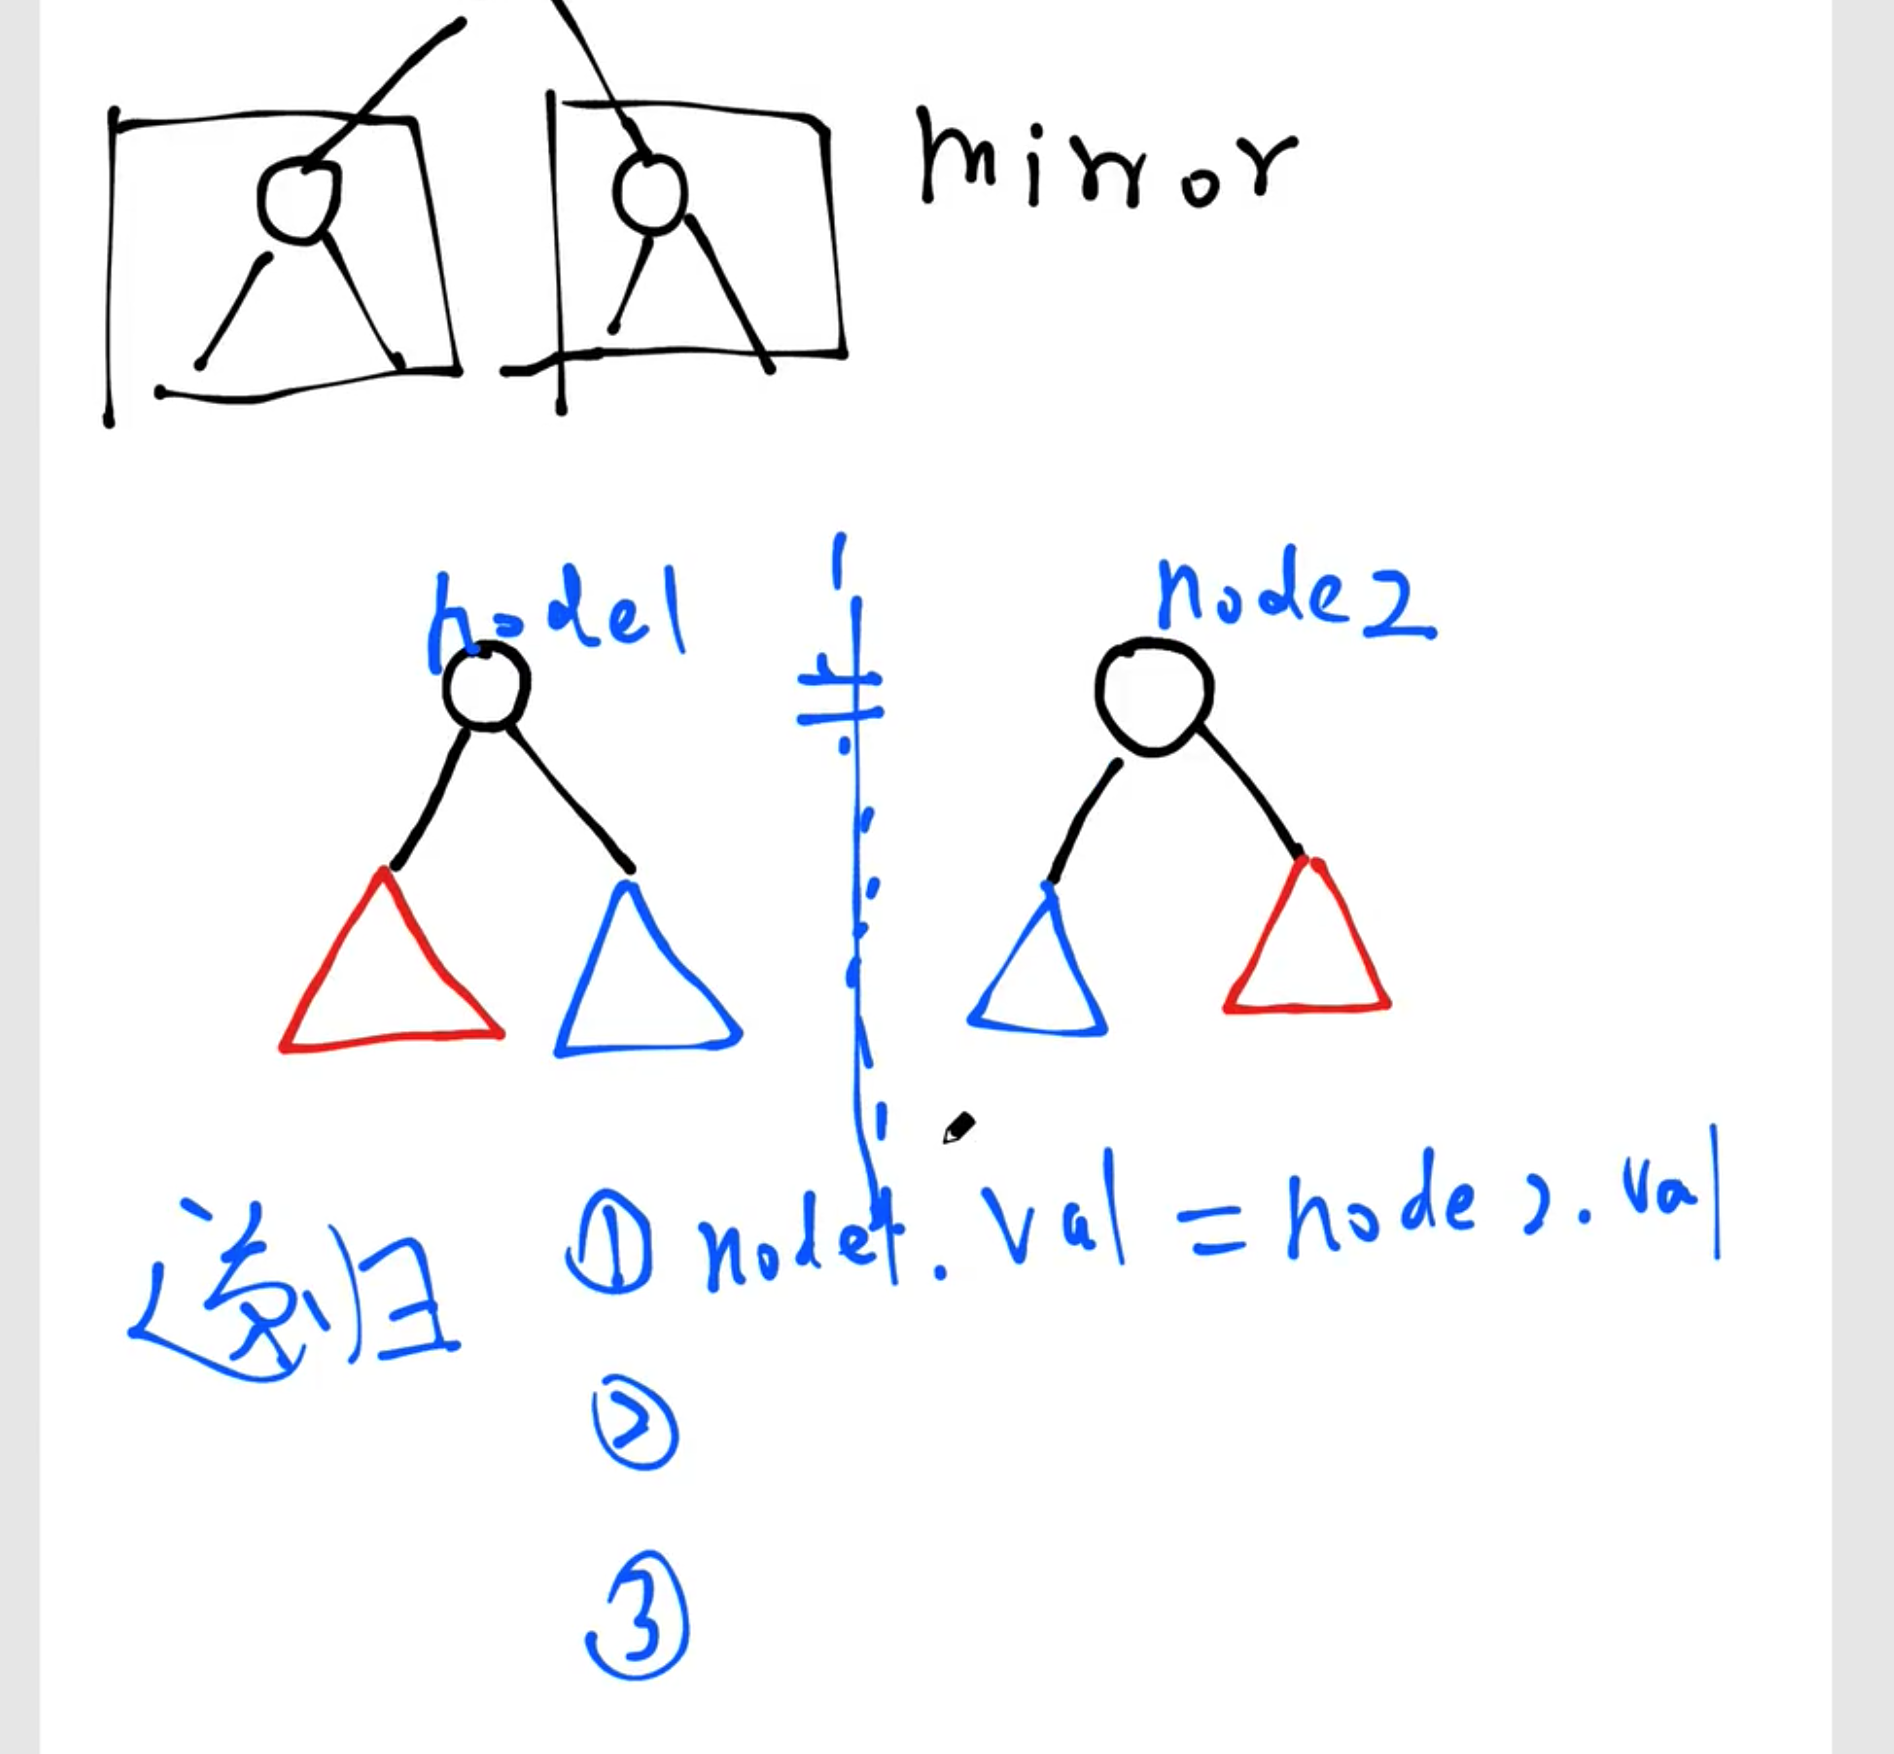 mirror
node1 node2
递归 ① node1.val = node2.val
②
③